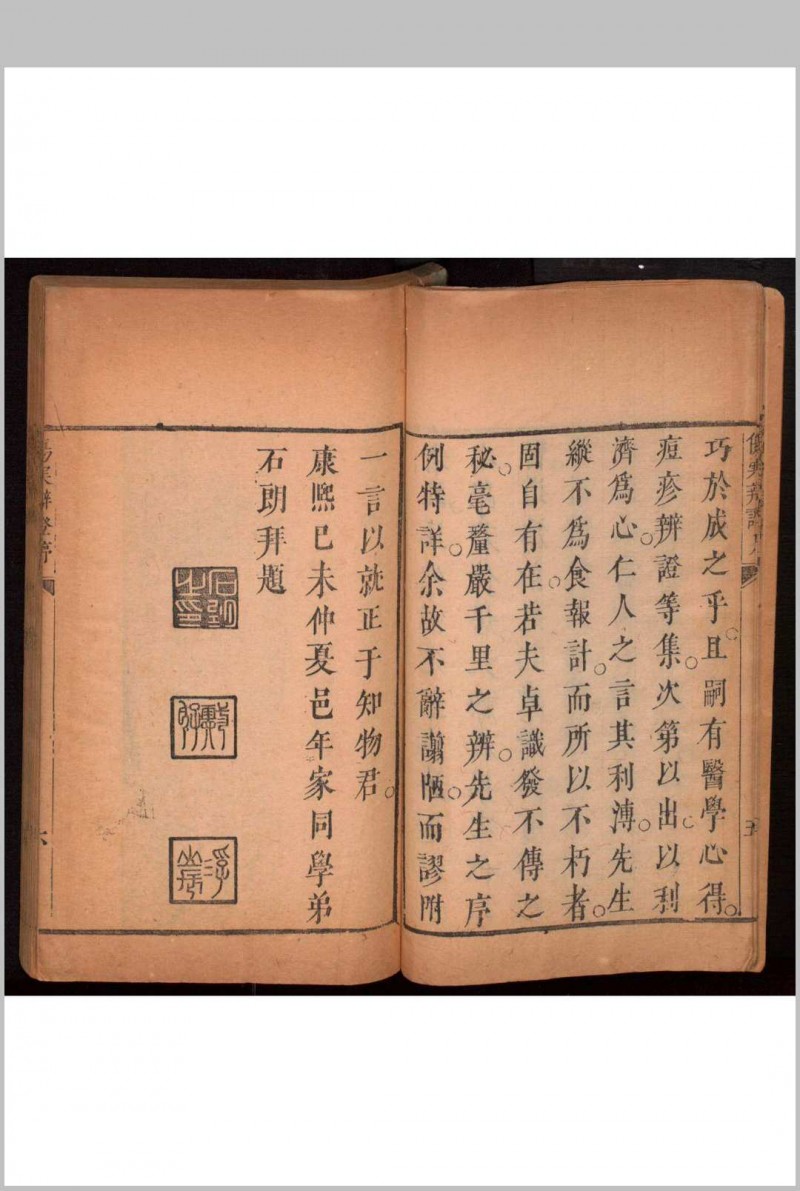 傷寒辨證序
五
巧於成之乎且嗣有醫學心得
痘疹辨證等集次第以出以利
濟爲心仁人之言其利溥先生
縱不爲食報計而所以不朽者
固自有在若夫卓識發不傳之
秘毫釐嚴千里之辨先生之序
例特詳余故不辭譾陋而謬附
一言以就正于知物君
康熙己未仲夏邑年家同學弟
石朗拜題
石朗之印
傷寒辨證序
六